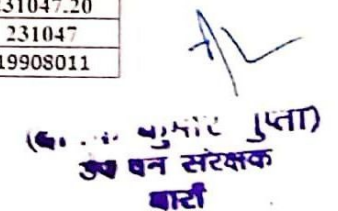 231047.20
231047
19908011
कुमार गुप्ता)
उप वन संरक्षक
बारां